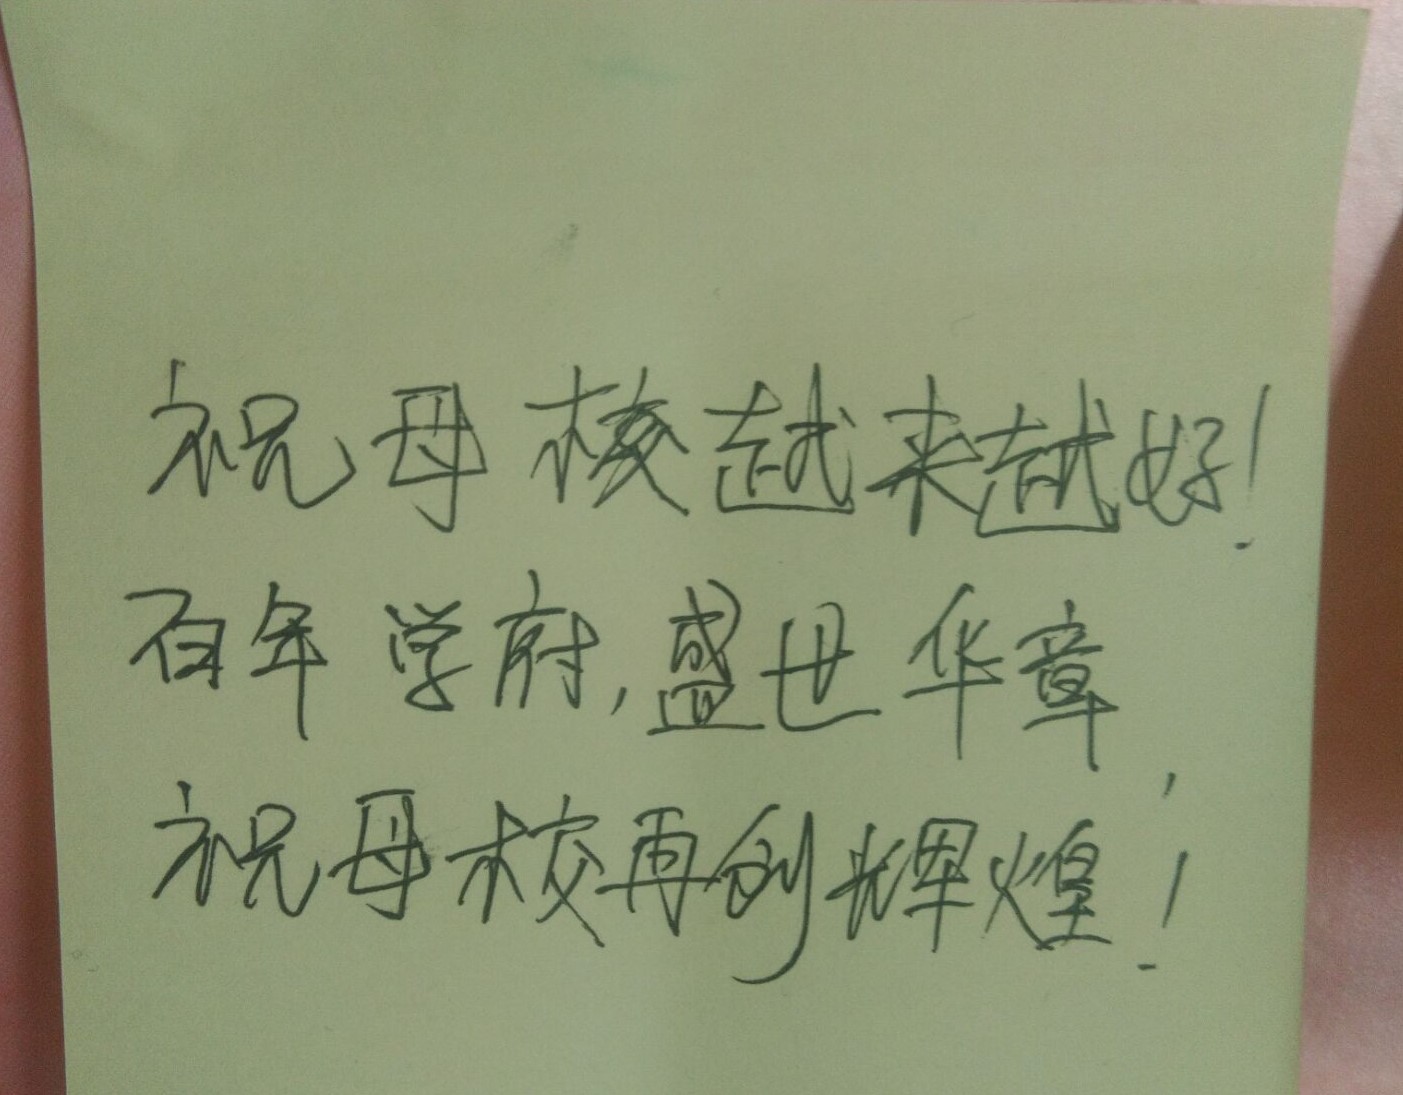 祝母校越来越好!
百年学府,盛世华章,
祝母校再创辉煌!